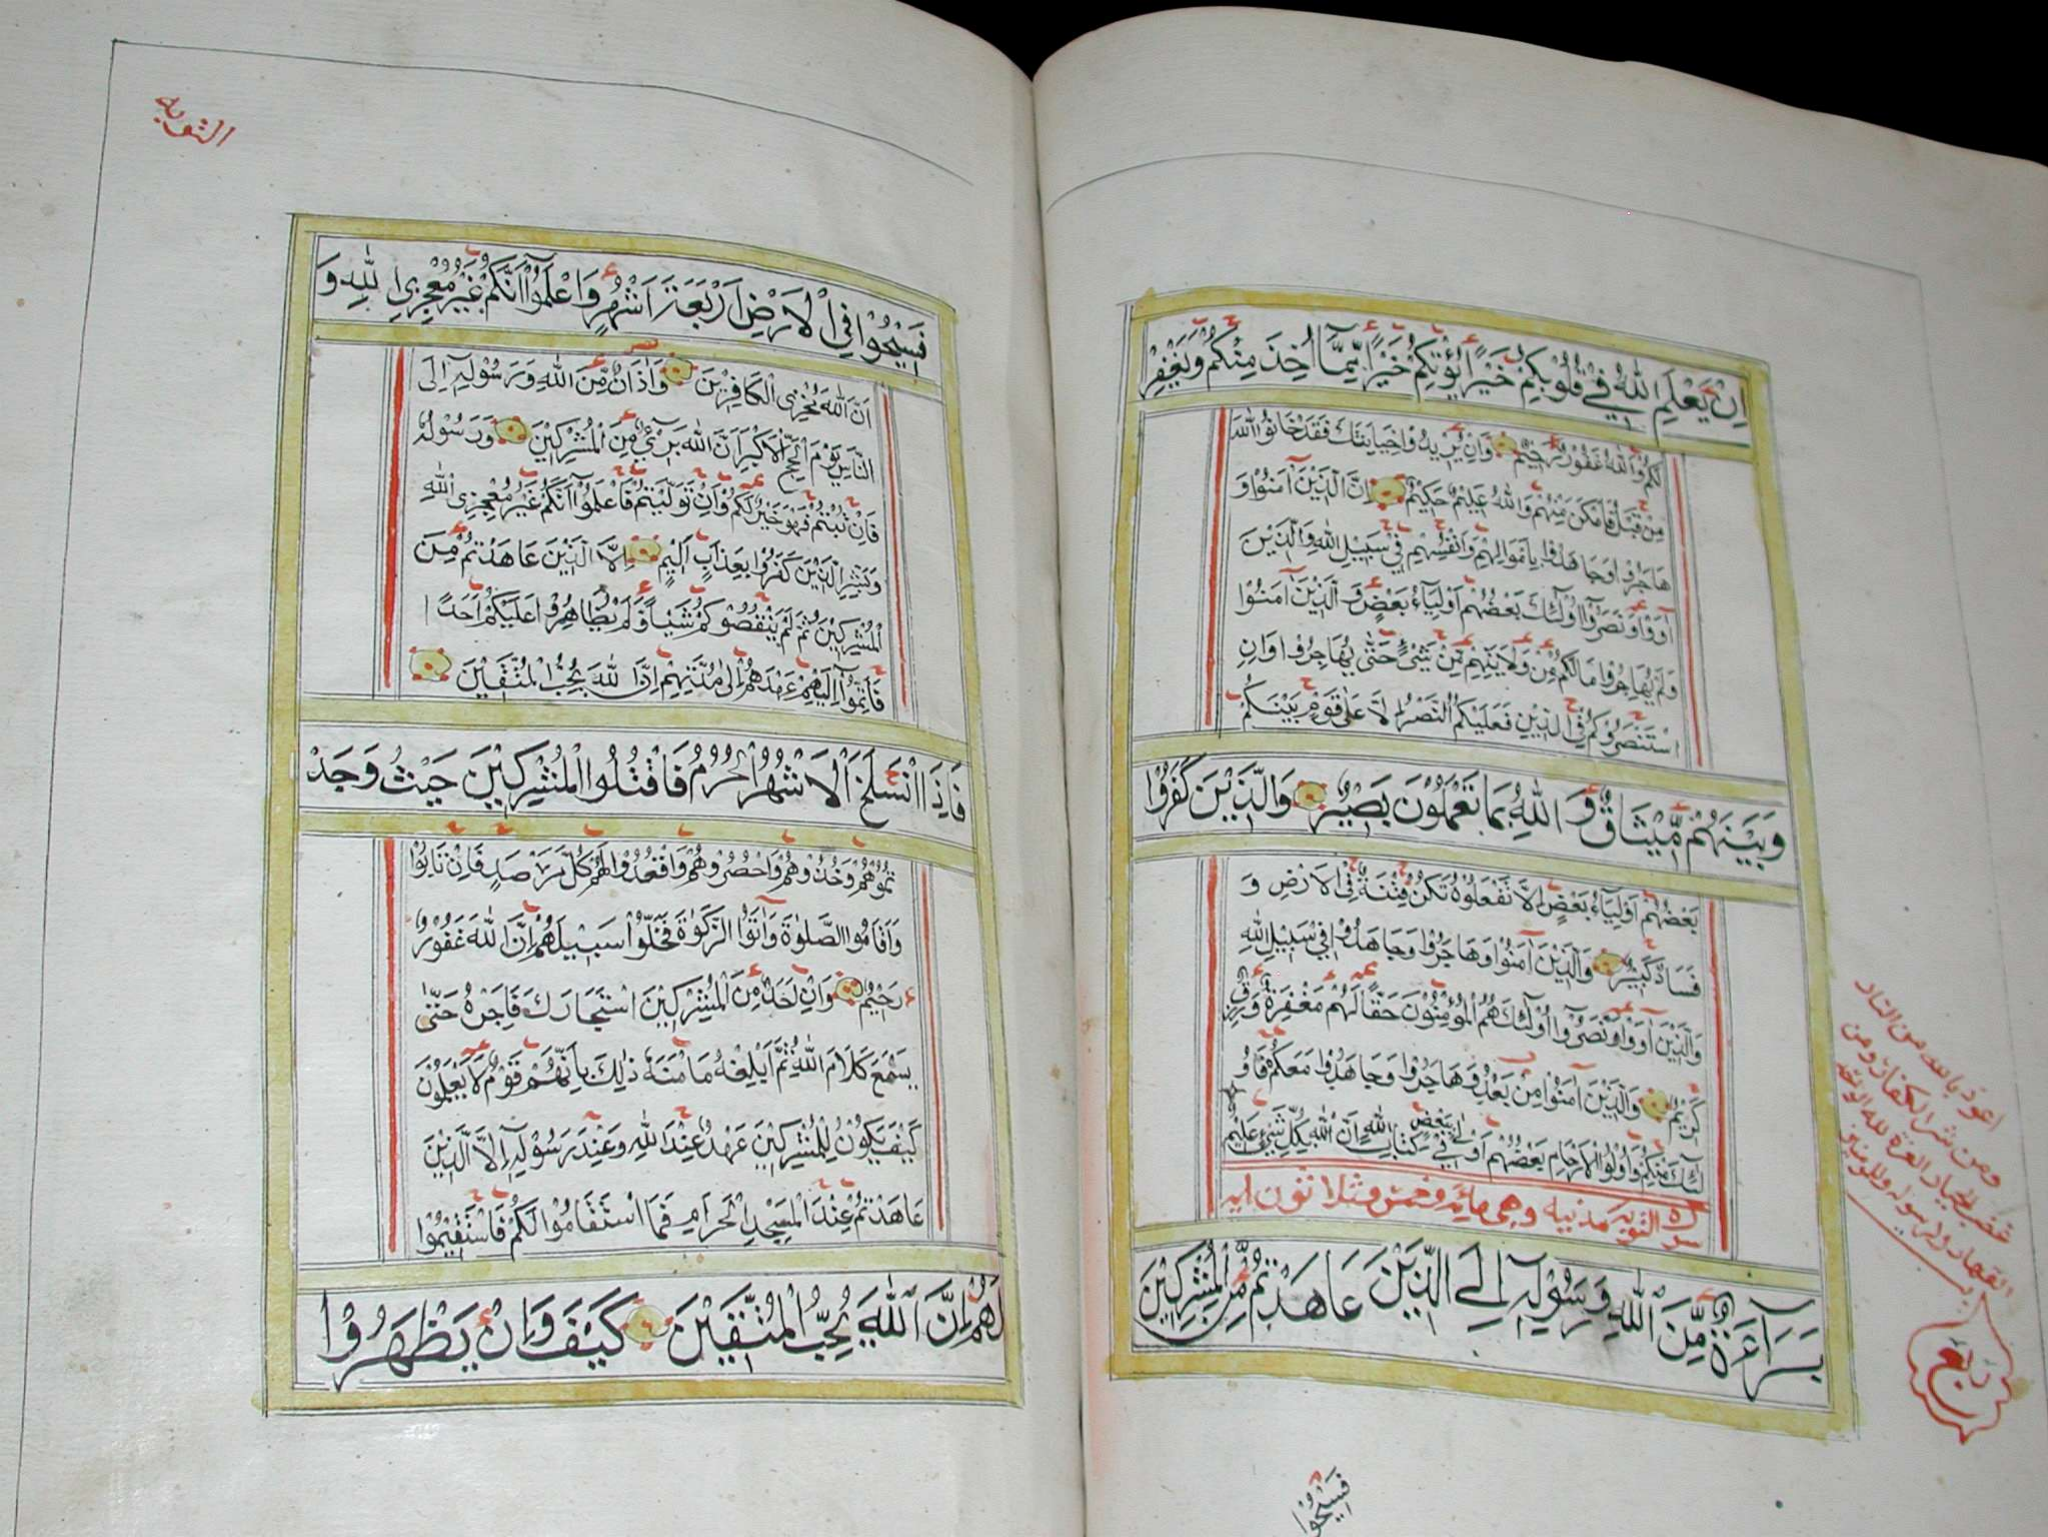 اِنْ يَعْلَمِ اللهُ فِيْ قُلُوْبِكُمْ خَيْرًا يُؤْتِكُمْ خَيْرًا مِمَّآ اُخِذَ مِنْكُمْ وَيَغْفِرْ
لَكُمْ وَاللهُ غَفُوْرٌ رَحِيْمٌ وَاِنْ يُرِيْدُوْا خِيَانَتَكَ فَقَدْ خَانُوا اللهَ
مِنْ قَبْلُ فَاَمْكَنَ مِنْهُمْ وَاللهُ عَلِيْمٌ حَكِيْمٌ اِنَّ الَّذِيْنَ اٰمَنُوْا وَ
هَاجَرُوْا وَجَاهَدُوْا بِاَمْوَالِهِمْ وَاَنْفُسِهِمْ فِيْ سَبِيْلِ اللهِ وَالَّذِيْنَ
اٰوَوْا وَنَصَرُوْآ اُولٰٓئِكَ بَعْضُهُمْ اَوْلِيَآءُ بَعْضٍ وَالَّذِيْنَ اٰمَنُوْا
وَلَمْ يُهَاجِرُوْا مَالَكُمْ مِنْ وَلَايَتِهِمْ مِنْ شَيْءٍ حَتّٰى يُهَاجِرُوْا وَاِنِ
اسْتَنْصَرُوْكُمْ فِى الدِّيْنِ فَعَلَيْكُمُ النَّصْرُ اِلَّا عَلٰى قَوْمٍ بَيْنَكُمْ
وَبَيْنَهُمْ مِّيْثَاقٌ وَ اللهُ بِمَا تَعْمَلُوْنَ بَصِيْرٌ وَالَّذِيْنَ كَفَرُوْا
بَعْضُهُمْ اَوْلِيَآءُ بَعْضٍ اِلَّا تَفْعَلُوْهُ تَكُنْ فِتْنَةٌ فِى الْاَرْضِ وَ
فَسَادٌ كَبِيْرٌ وَالَّذِيْنَ اٰمَنُوْا وَهَاجَرُوْا وَجَاهَدُوْا فِيْ سَبِيْلِ اللهِ
وَالَّذِيْنَ اٰوَوْا وَنَصَرُوْآ اُولٰٓئِكَ هُمُ الْمُؤْمِنُوْنَ حَقًّا لَهُمْ مَغْفِرَةٌ وَرِزْقٌ
كَرِيْمٌ وَالَّذِيْنَ اٰمَنُوْا مِنْ بَعْدُ وَهَاجَرُوْا وَجَاهَدُوْا مَعَكُمْ فَاُو
لٰٓئِكَ مِنْكُمْ وَاُولُوا الْاَرْحَامِ بَعْضُهُمْ اَوْلٰى بِبَعْضٍ فِيْ كِتَابِ اللهِ اِنَّ اللهَ بِكُلِّ شَيْءٍ عَلِيْمٌ
سورة التوبه مدنيه وهى مائة وخمس وثلاثون ايه
بَرَآءَةٌ مِّنَ اللهِ وَرَسُوْلِهٖٓ اِلَى الَّذِيْنَ عَاهَدْتُمْ مِّنَ الْمُشْرِكِيْنَ
اعوذ بالله من النار
ومن شر الكفار ومن
غضب الجبار العزة لله الواحد
القهار ولرسوله وللمؤمنين
ربع
فَسِيْحُوْا
التوبه
فَسِيْحُوْا فِى الْاَرْضِ اَرْبَعَةَ اَشْهُرٍ وَاعْلَمُوْآ اَنَّكُمْ غَيْرُ مُعْجِزِى اللهِ وَ
اَنَّ اللهَ مُخْزِى الْكَافِرِيْنَ وَاَذَانٌ مِّنَ اللهِ وَرَسُوْلِهٖٓ اِلَى
النَّاسِ يَوْمَ الْحَجِّ الْاَكْبَرِ اَنَّ اللهَ بَرِيْٓءٌ مِنَ الْمُشْرِكِيْنَ وَرَسُوْلُهُ
فَاِنْ تُبْتُمْ فَهُوَ خَيْرٌ لَكُمْ وَاِنْ تَوَلَّيْتُمْ فَاعْلَمُوْآ اَنَّكُمْ غَيْرُ مُعْجِزِى اللهِ
وَبَشِّرِ الَّذِيْنَ كَفَرُوْا بِعَذَابٍ اَلِيْمٍ اِلَّا الَّذِيْنَ عَاهَدْتُمْ مِنَ
الْمُشْرِكِيْنَ ثُمَّ لَمْ يَنْقُصُوْكُمْ شَيْئًا وَّلَمْ يُظَاهِرُوْا عَلَيْكُمْ اَحَدًا
فَاَتِمُّوْآ اِلَيْهِمْ عَهْدَهُمْ اِلٰى مُدَّتِهِمْ اِنَّ اللهَ يُحِبُّ الْمُتَّقِيْنَ
فَاِذَا انْسَلَخَ الْاَشْهُرُ الْحُرُمُ فَاقْتُلُوا الْمُشْرِكِيْنَ حَيْثُ وَجَدْ
تُمُوْهُمْ وَخُذُوْهُمْ وَاحْصُرُوْهُمْ وَاقْعُدُوْا لَهُمْ كُلَّ مَرْصَدٍ فَاِنْ تَابُوْا
وَاَقَامُوا الصَّلٰوةَ وَاٰتَوُا الزَّكٰوةَ فَخَلُّوْا سَبِيْلَهُمْ اِنَّ اللهَ غَفُوْرٌ
رَحِيْمٌ وَاِنْ اَحَدٌ مِّنَ الْمُشْرِكِيْنَ اسْتَجَارَكَ فَاَجِرْهُ حَتّٰى
يَسْمَعَ كَلَامَ اللهِ ثُمَّ اَبْلِغْهُ مَاْمَنَهُ ذٰلِكَ بِاَنَّهُمْ قَوْمٌ لَا يَعْلَمُوْنَ
كَيْفَ يَكُوْنُ لِلْمُشْرِكِيْنَ عَهْدٌ عِنْدَ اللهِ وَعِنْدَ رَسُوْلِهٖٓ اِلَّا الَّذِيْنَ
عَاهَدْتُمْ عِنْدَ الْمَسْجِدِ الْحَرَامِ فَمَا اسْتَقَامُوْا لَكُمْ فَاسْتَقِيْمُوْا
لَهُمْ اِنَّ اللهَ يُحِبُّ الْمُتَّقِيْنَ كَيْفَ وَاِنْ يَظْهَرُوْا